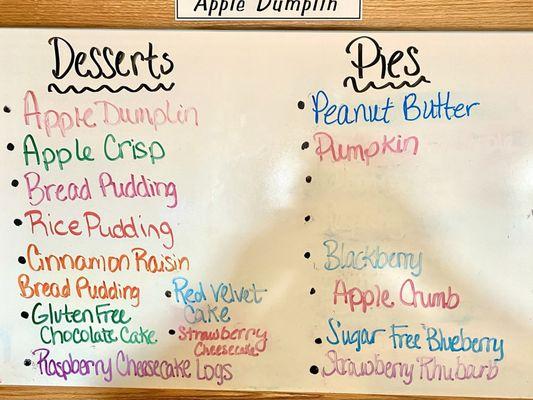 Apple Dumplin
Desserts
Apple Dumplin
Apple Crisp
Bread Pudding
Rice Pudding
Cinnamon Raisin
Bread Pudding
Gluten Free
Chocolate Cake
Red Velvet
Cake
Strawberry
Cheesecake
Raspberry Cheesecake Logs
Pies
Peanut Butter
Pumpkin
Blackberry
Apple Crumb
Sugar Free Blueberry
Strawberry Rhubarb